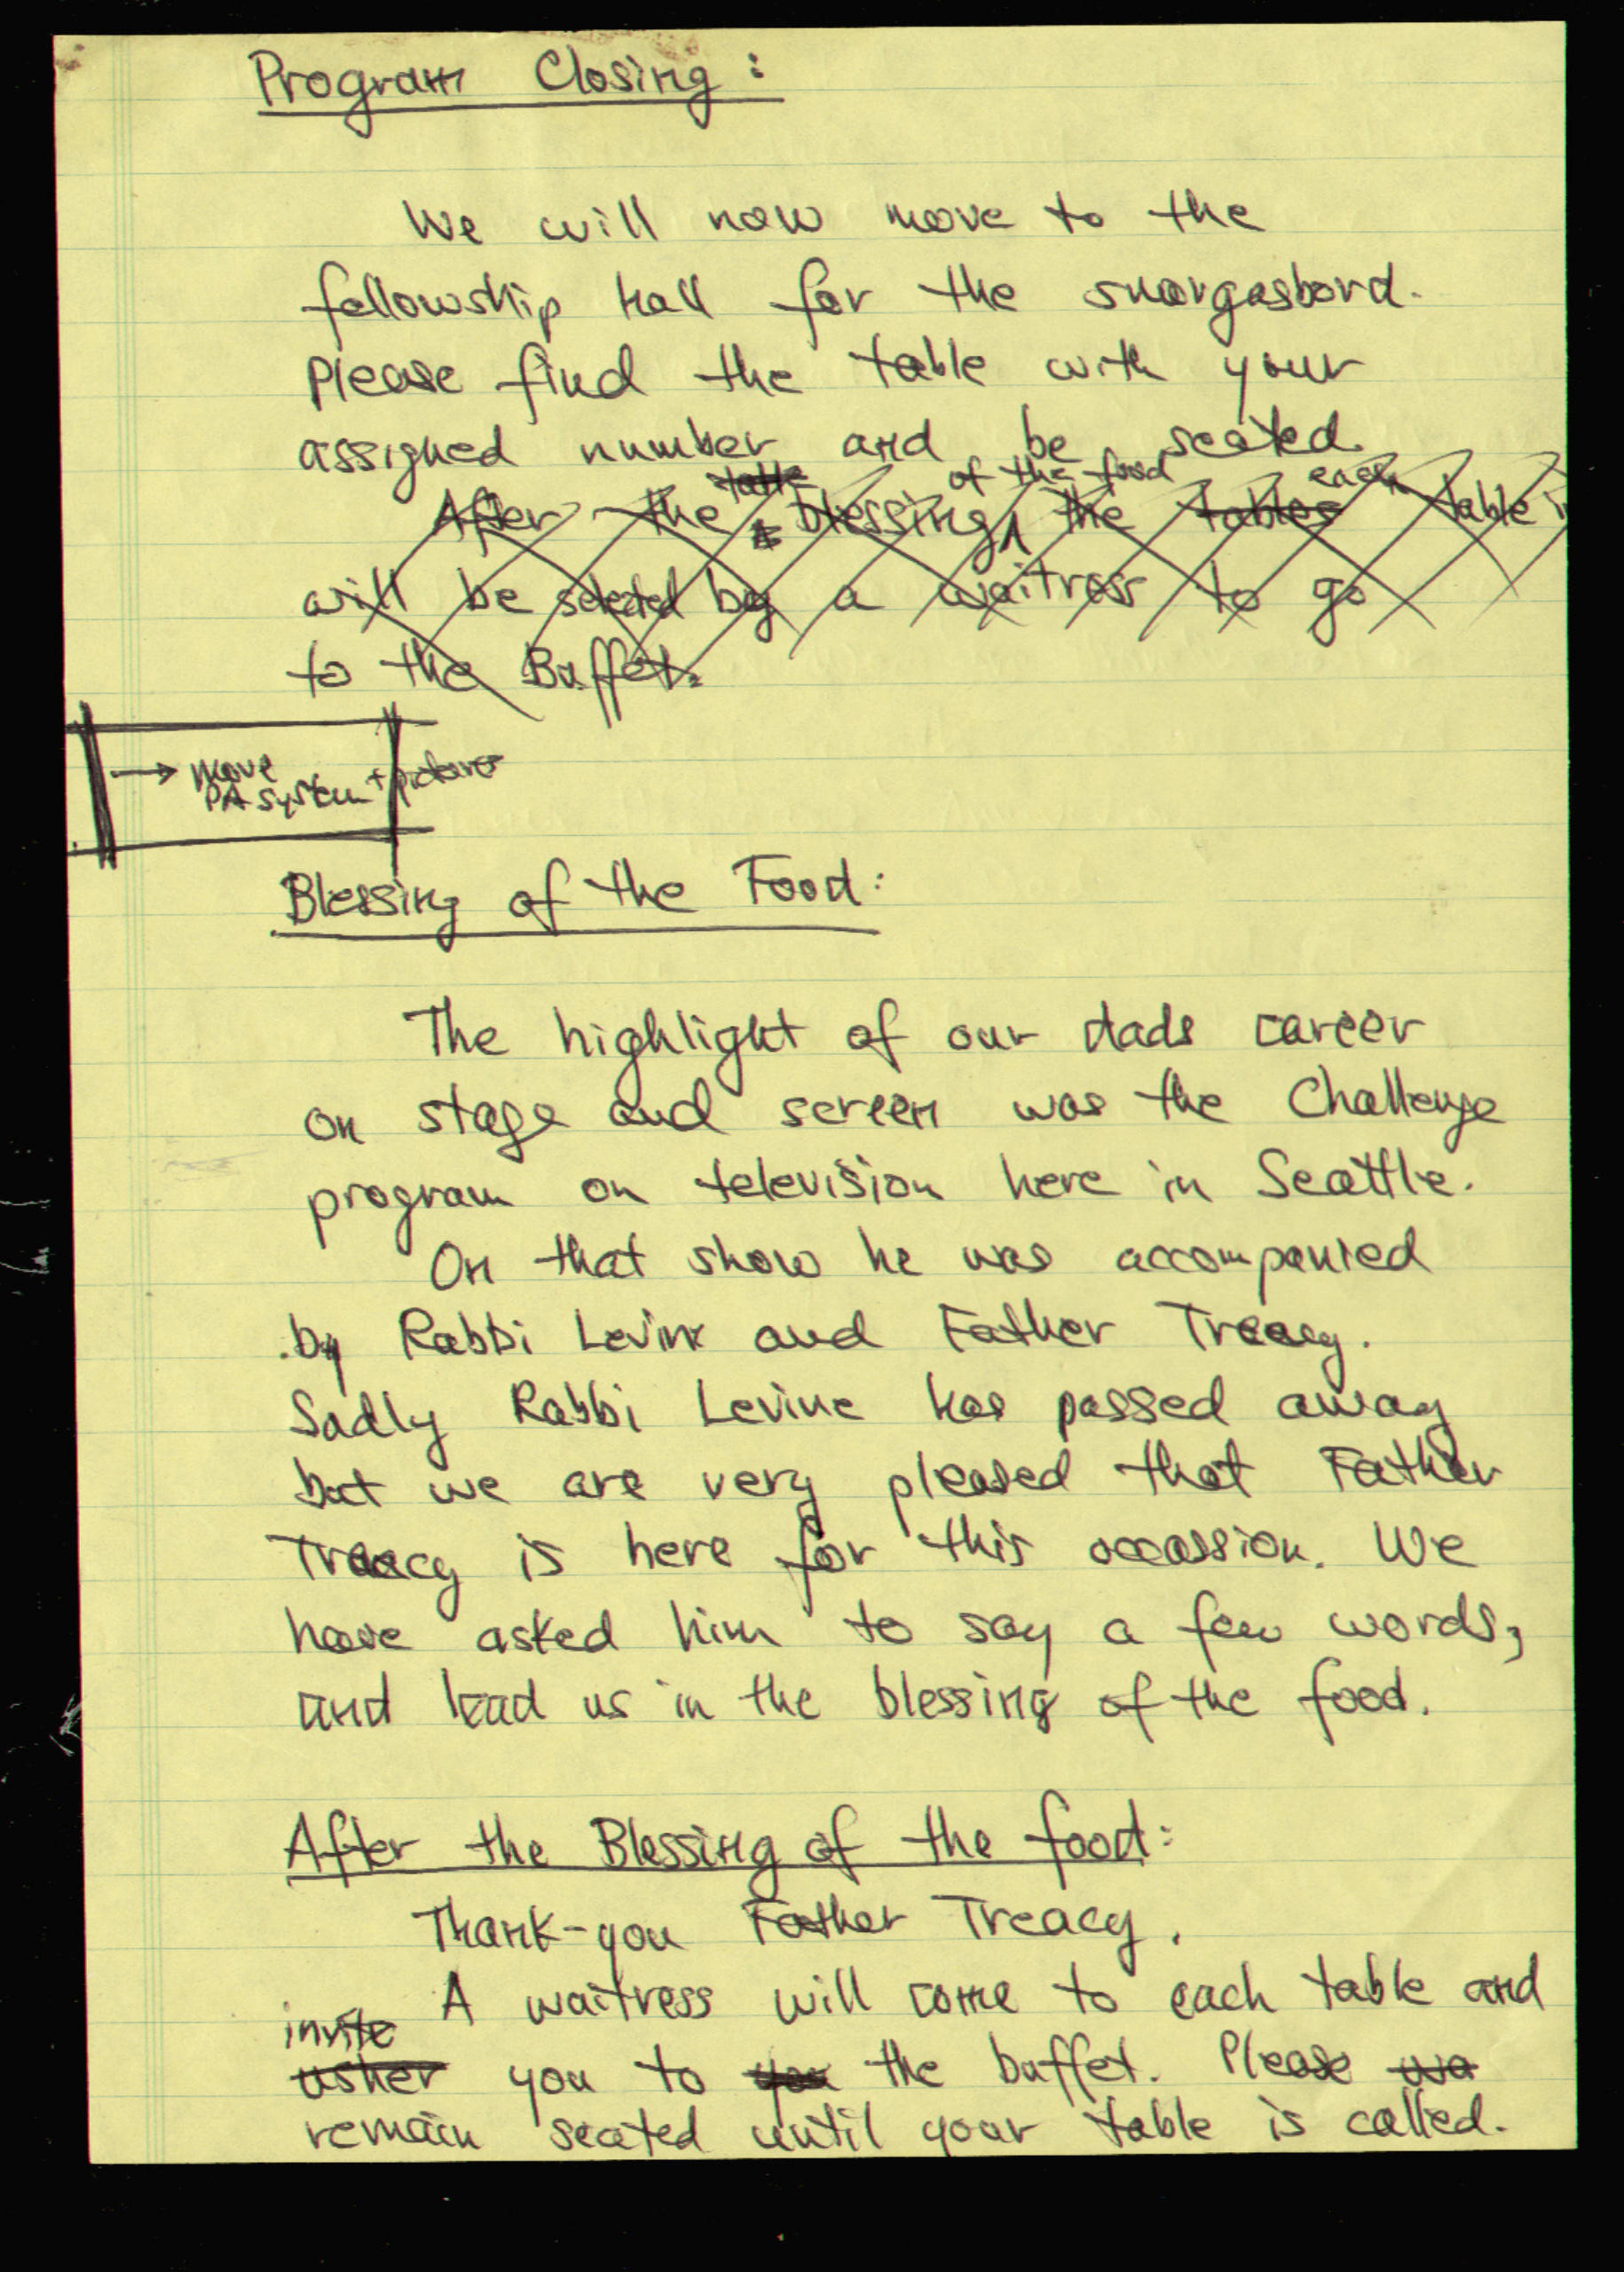 Program Closing:
We will now move to the
fellowship hall for the smorgasbord.
Please find the table with your
assigned number and be seated.
table of the food each
After the blessing, the tables table
will be selected by a waitress to go
to the Buffet.
→ move
PA system + pictures
Blessing of the Food:
The highlight of our dads career
on stage and screen was the Challenge
program on television here in Seattle.
On that show he was accompanied
by Rabbi Levine and Father Treacy.
Sadly Rabbi Levine has passed away
but we are very pleased that Father
Treacy is here for this occassion. We
have asked him to say a few words,
and lead us in the blessing of the food.
After the Blessing of the food:
Thank-you Father Treacy.
A waitress will come to each table and
invite
usher you to you the buffet. Please
remain seated until your table is called.